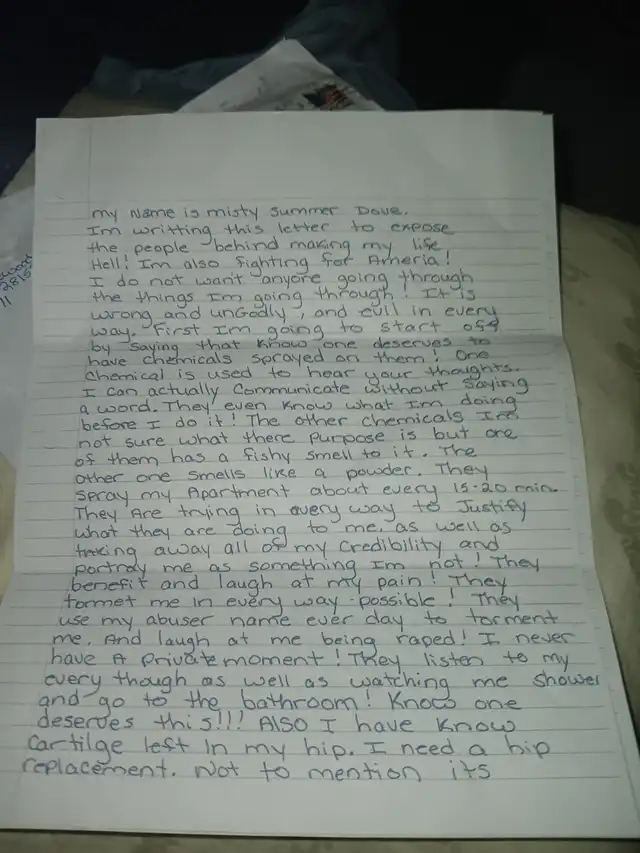 my Name is misty summer Dove.
Im writting this letter to expose
the people behind making my life
Hell! Im also fighting for Ameria!
I do not want anyone going through
the things Im going through! It is
wrong and unGodly, and evil in every
way. First Im going to start off
by saying that Know one deserves to
have chemicals sprayed on them! One
chemical is used to hear your thoughts.
I can actually Communicate without saying
a word. They even Know what Im doing
before I do it! The other chemicals Im
not sure what there Purpose is but one
of them has a fishy smell to it. The
other one smells like a powder. They
spray my Apartment about every 15-20 min.
They Are trying in every way to Justify
what they are doing to me, as well as
taking away all of my credibility and
portray me as something Im not! They
benefit and laugh at my pain! They
tormet me in every way possible! They
use my abuser name ever day to torment
me. And laugh at me being raped! I never
have A Private moment! They listen to my
every though as well as watching me shower
and go to the bathroom! Know one
deserves this!!! Also I have Know
cartilge left in my hip. I need a hip
replacement. Not to mention its
28/5
11